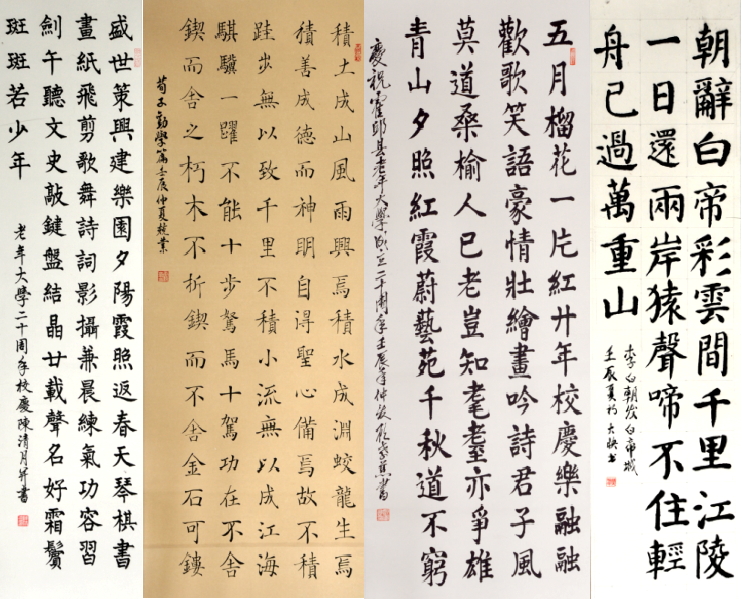 朝辭白帝彩雲間千里江陵
一日還兩岸猿聲啼不住輕
舟已過萬重山
李白朝發白帝城
壬辰夏月書
五月榴花一片紅廿年校慶樂融融
歡歌笑語豪情壯繪畫吟詩君子風
莫道桑榆人已老豈知耄耋亦爭雄
青山夕照紅霞蔚藝苑千秋道不窮
慶祝霍邱縣老年大學成立二十周年壬辰年仲夏書
積土成山風雨興焉積水成淵蛟龍生焉
積善成德而神明自得聖心備焉故不積
跬步無以致千里不積小流無以成江海
騏驥一躍不能十步駑馬十駕功在不舍
鍥而舍之朽木不析鍥而不舍金石可鏤
荀子勸學篇壬辰仲夏兢業
盛世策興建樂園夕陽霞照返春天琴棋書
畫紙飛剪歌舞詩詞影攝兼晨練氣功容習
劍午聽文史敲鍵盤結晶廿載聲名好霜鬢
斑斑若少年
老年大學二十周年校慶陳清月并書